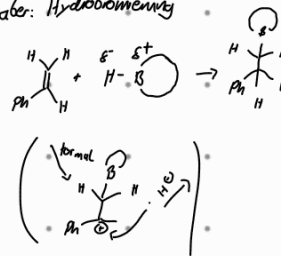 aber: Hydroborierung
H H δ- δ+ B
+ H - B → H H
Ph H Ph H
H
formal B
H H H⊖
Ph ⊕